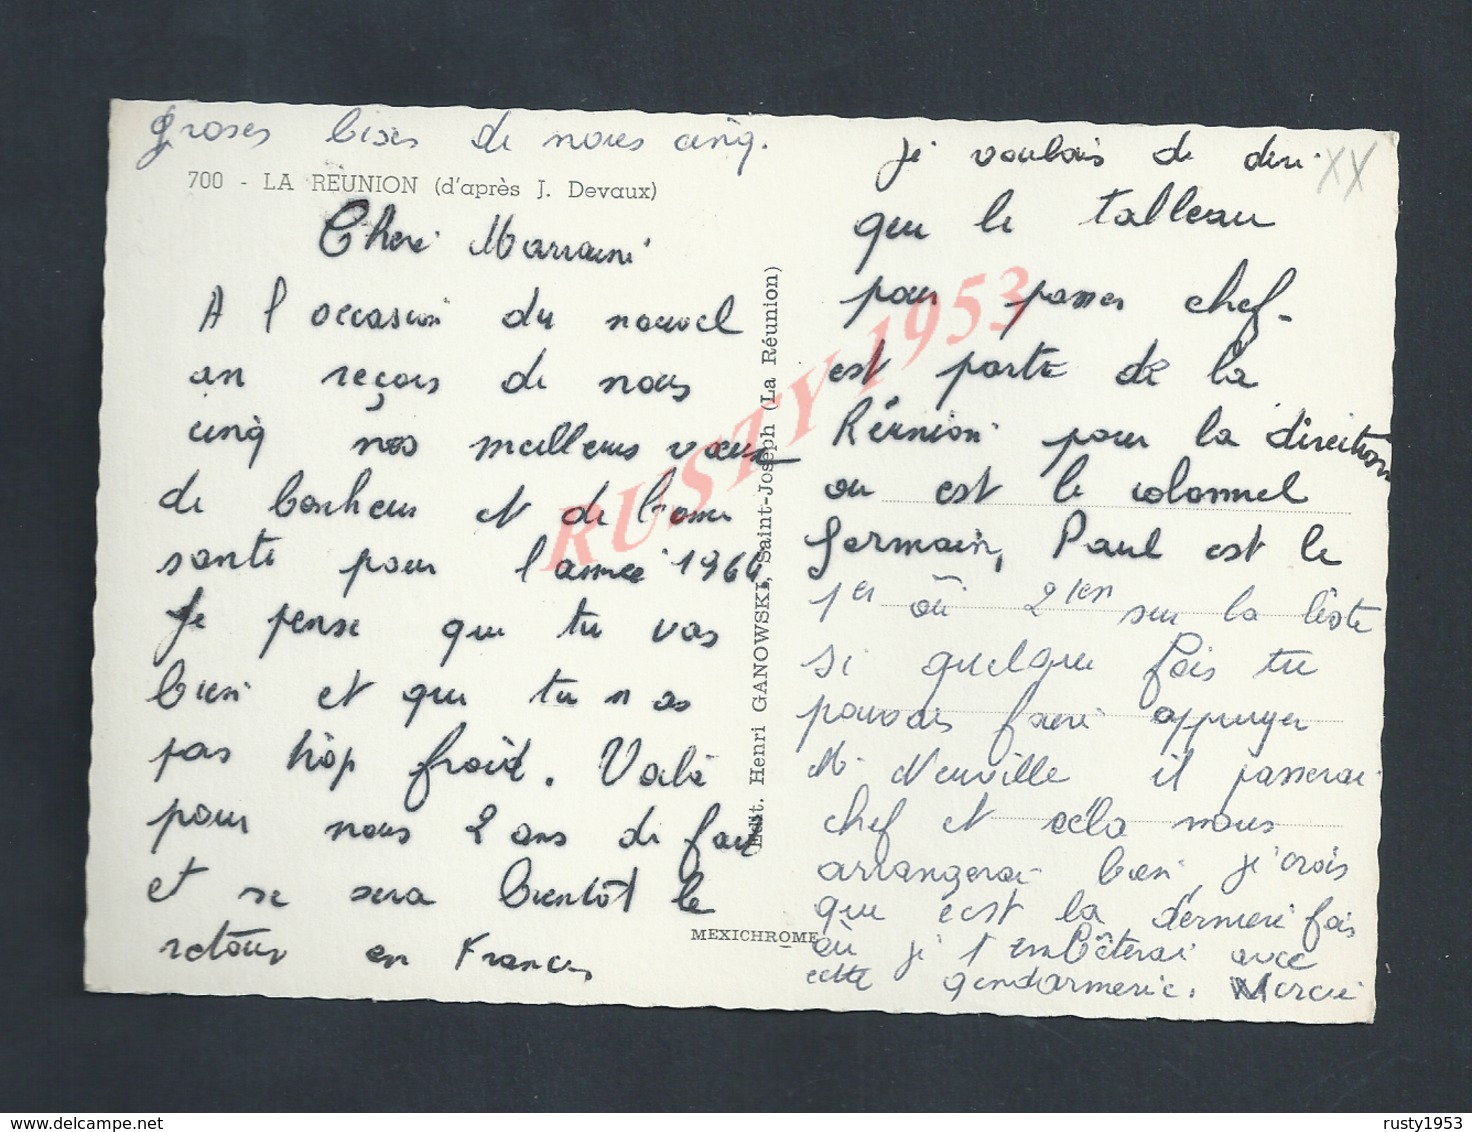 groses bises de nous cinq.
700 - LA RÉUNION (d'après J. Devaux)
Chère Marraine
A l'occasion du nouvel
an reçois de nous
cinq nos meilleurs vœux
de bonheur et de bonne
santé pour l'année 1966
Je pense que tu vas
bien et que tu n as
pas trop froid. Voilà
pour nous 2 ans de fait
et se sera bientôt le
retour en France
Edit. Henri GANOWSKI, Saint-Joseph (La Réunion)
MEXICHROME
je voulais de dire
que le tableau
pour passer chef
est partie de la
Réunion pour la direction
ou est le colonnel
Germain, Paul est le
1er où 2ien sur la liste
si quelque fois tu
pouvais faire appuyer
M. Neuville il passerai
chef et cela nous
arrangerai bien je crois
que ecst la dernière fois
où je t'embêterai avec
cette gendarmerie. Merci
XX
RUSTY 1953
rusty1953